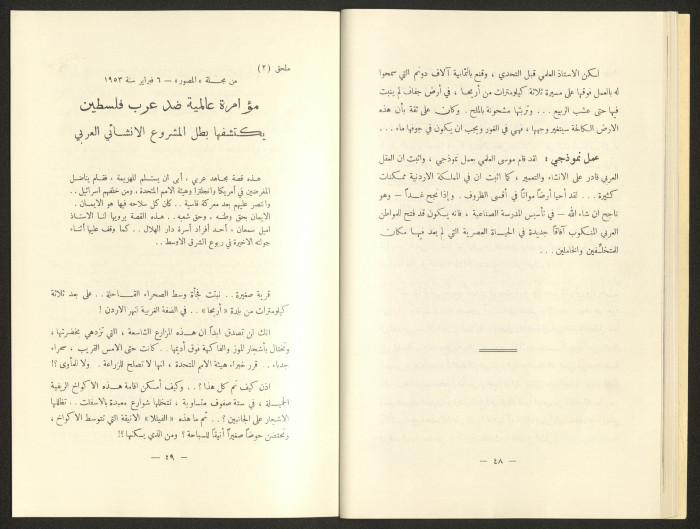 لكن الاستاذ العلمي قبل التحدي ، وقنع بالثمانية آلاف دونم التي سمحوا
له بالعمل فوقها على مسيرة ثلاثة كيلومترات من أرمحا ، في أرض جفاف لم ينبت
فيها حتى عشب الربيع ... وتربتها مشحونة بالملح . وكان على ثقة بأن هذه
الارض الكالحة سيتغير وجهها ، فهي في الغور ويجب ان يكون في جوفها ماء ...
عمل نموذجي : لقد قام موسى العلمي بعمل نموذجي ، واثبت ان العقل
العربي قادر على الانشاء والتعمير ، كما اثبت ان في المملكة الاردنية ممكنات
كثيرة ... لقد أحيا أرضاً مواتاً في أقسى الظروف . وإذا نجح غداً – وهو
ناجح ان شاء الله – في تأسيس المدرسة الصناعية ، فانه يكون قد فتح للمواطن
العربي المنكوب آفاقاً جديدة في الحياة العصرية التي لم يعد فيها مكان
للمتخلفين والخاملين ...
– ٤٨ –
ملحق (٢)
من مجلة « المصور » – ٦ فبراير سنة ١٩٥٣
مؤامرة عالمية ضد عرب فلسطين
يكتشفها بطل المشروع الانشائي العربي
هذه قصة مجاهد عربي ، أبى ان يستسلم للهزيمة ، فقام يناضل
المغرضين في أمريكا وانجلترا وهيئة الامم المتحدة، ومن خلفهم اسرائيل ..
وانتصر عليهم بعد معركة قاسية .. كان كل سلاحه فيها هو الايمان .
الايمان بحق وطنه ، وحق شعبه .. هذه القصة يرويها لنا الاستاذ
اميل سمعان ، أحد أفراد أسرة دار الهلال .. كما وقف عليها أثناء
جولته الاخيرة في ربوع الشرق الاوسط ..
قرية صغيرة .. نبتت فجأة وسط الصحراء القاحلة .. على بعد ثلاثة
كيلومترات من بلدة « أريحا » .. في الضفة الغربية لنهر الاردن !
انك لن تصدق ابداً ان هذه المزارع الشاسعة ، التي تزدهي بخضرتها ،
وتختال بأشجار الموز والفاكهة فوق أديمها .. كانت حتى الامس القريب ، صحراء
جدباء .. قرر خبراء هيئة الامم المتحدة ، انها لا تصلح للزراعة . ولا للمأوى ؟!
اذن كيف تم كل هذا ؟ .. وكيف أمكن اقامة هذه الاكواخ الريفية
الجميلة ، في ستة صفوف متساوية ، تتخللها شوارع معبدة بالاسفلت .. تظللها
الاشجار على الجانبين ؟ .. ثم ما هذه « الفيللا » الانيقة التي تتوسط الاكواخ ،
وتحتضن حوضاً صغيراً أنيقاً للسباحة ؟ ومن الذي يسكنها ؟!
– ٤٩ –